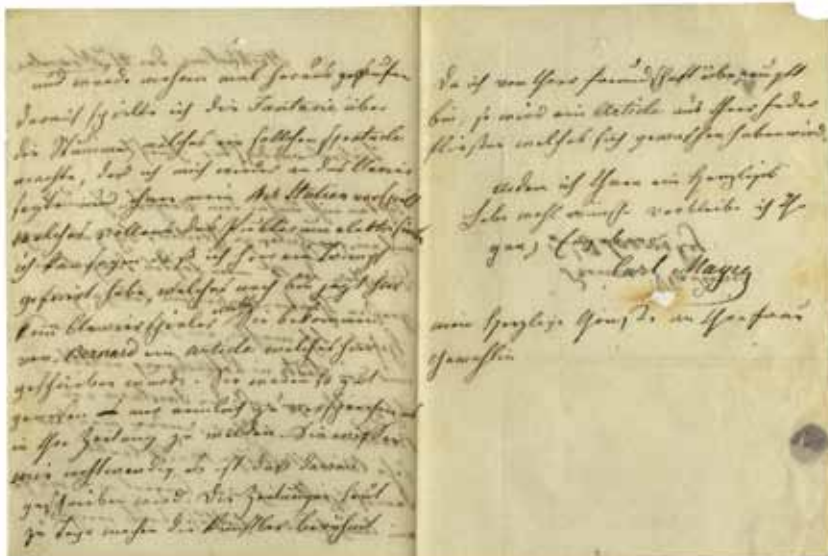 und wurde mehrere mal heraus gerufen
darauf spielte ich die Fantasie über
die Stumme, welches ein Spectacle
machte, daß ich mich wieder an das Clavier
setzte und ihnen mein
welches vollens das Publicum
ich kan sagen daß ich hier ein Triumf
gefeiert habe, welches noch bis jetzt hier
kein Clavierspieler Sie bekommen
von Bernard ein Article welches hier
geschrieben wurde. Sie werden so gut
in Ihre Zeitung zu melden. Sie wissen
wie nothwendig es ist daß davon
geschrieben wird. Die Zeitungen heut
zu Tage machen die Künstler berühmt
da ich von Ihrer Freundschaft überzeugt
bin, so wird ein Article aus Ihrer Feder
fließen welches sich gewaschen haben wird.
indem ich Ihnen ein herzliges
Lebe wohl verbleibe ich Ihr
ganz
Carl Mayer
mein herzliges Grüße an Ihre Frau
Gemahlin